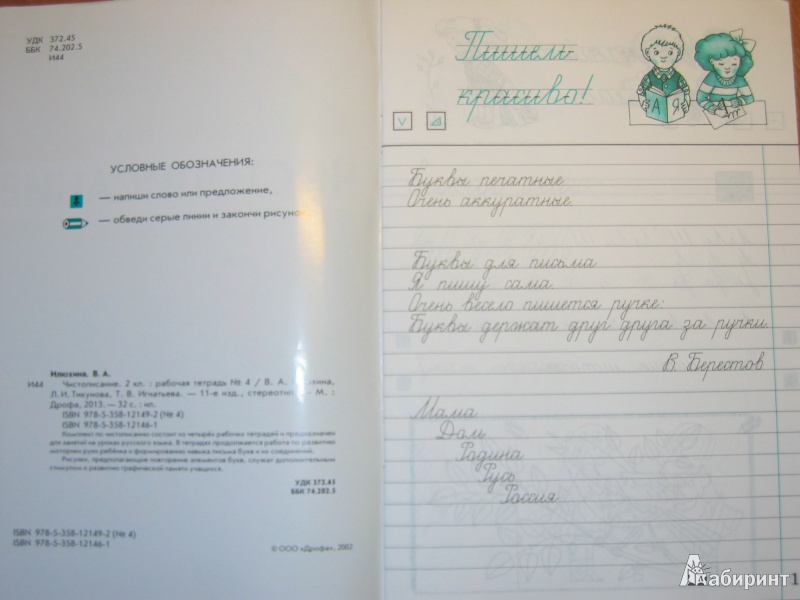 УДК 372.45
ББК 74.202.5
И44
УСЛОВНЫЕ ОБОЗНАЧЕНИЯ:
— напиши слово или предложение,
— обведи серые линии и закончи рисунок.
Илюхина, В. А.
И44 Чистописание. 2 кл. : рабочая тетрадь № 4 / В. А. Илюхина,
Л. И. Тикунова, Т. В. Игнатьева. — 11-е изд., стереотип. — М. :
Дрофа, 2013. — 32 с. : ил.
ISBN 978-5-358-12149-2 (№ 4)
ISBN 978-5-358-12146-1
Комплект по чистописанию состоит из четырёх рабочих тетрадей и предназначен
для занятий на уроках русского языка. В тетрадях продолжается работа по развитию
моторики руки ребёнка и формированию навыка письма букв и их соединений.
Рисунки, предполагающие повторение элементов букв, служат дополнительным
стимулом к развитию графической памяти учащихся.
УДК 373.45
ББК 74.202.5
ISBN 978-5-358-12149-2 (№ 4)
ISBN 978-5-358-12146-1
© ООО «Дрофа», 2002
Пишем
красиво!
А Я
Буквы печатные
Очень аккуратные.
Буквы для письма
Я пишу сама.
Очень весело пишется ручке:
Буквы держат друг друга за ручки.
В. Берестов
Мама
Дом
Родина
Русь
Россия
Лабиринт
1